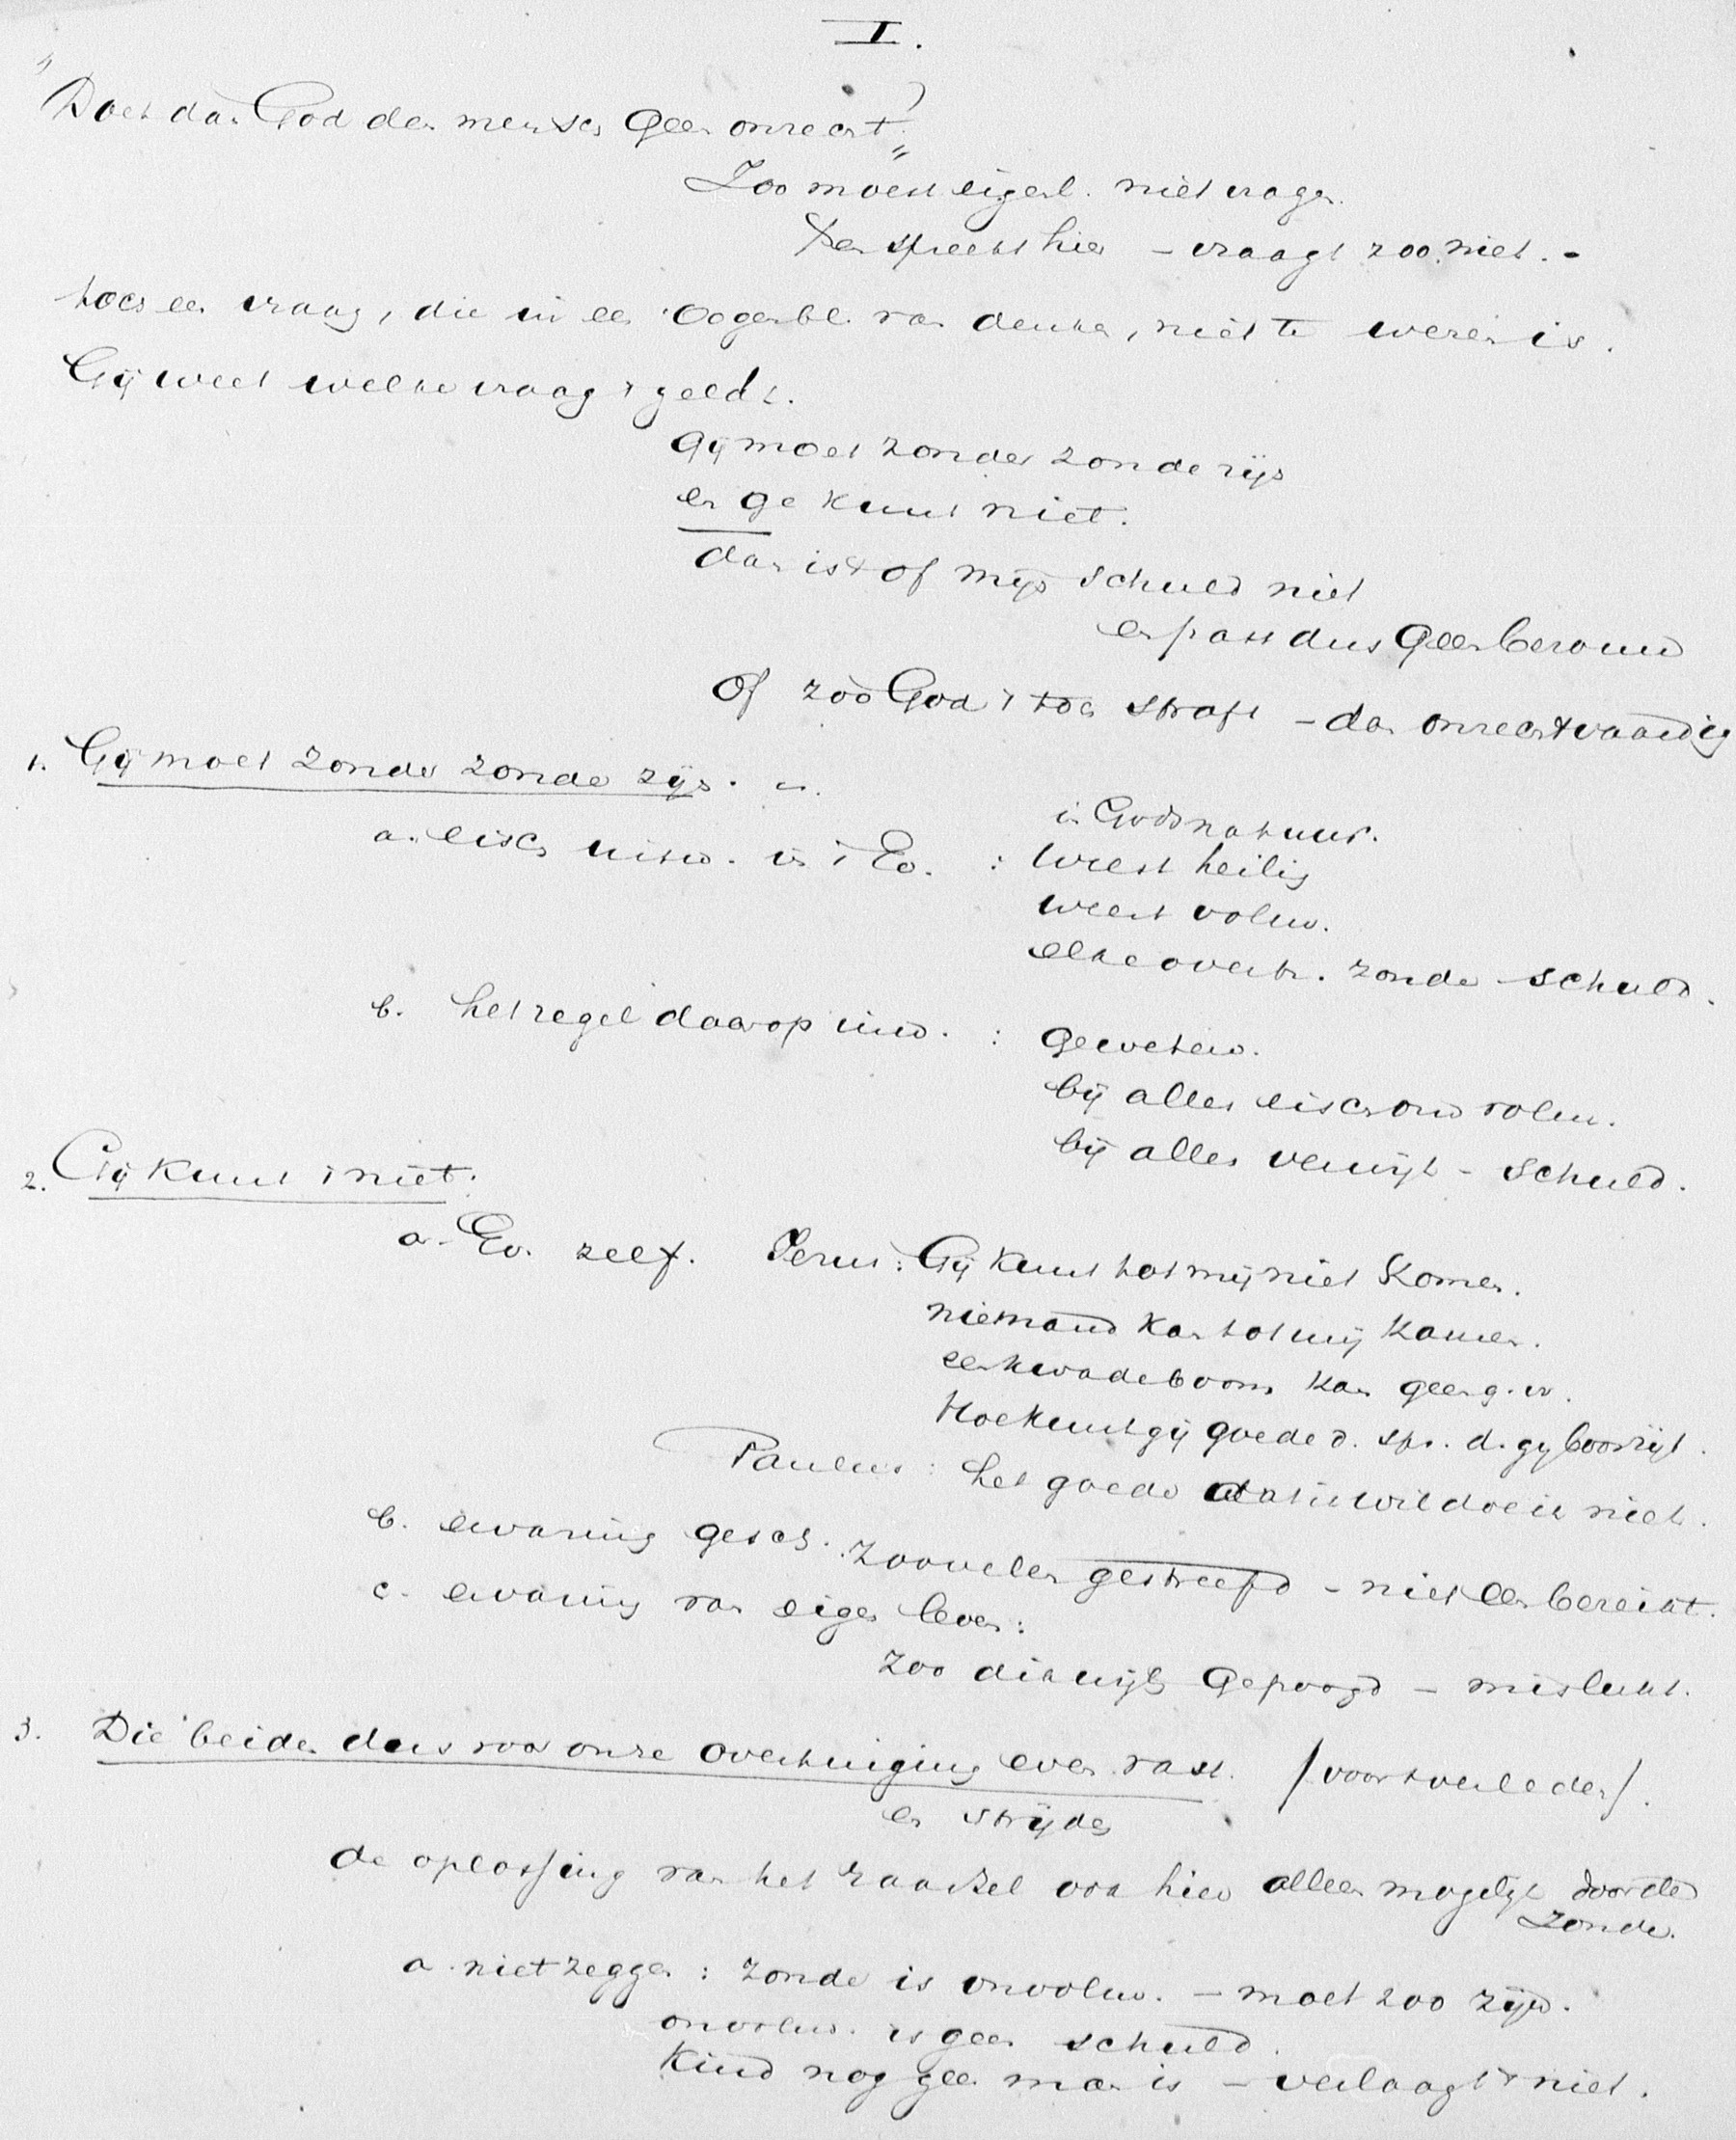 I.
"Doet dan God den mensch geen onrecht?"
Zoo moest eigenl. niet vragen.
Den spreekt hier - vraagt zoo niet. -
toch een vraag, die in een oogenbl. van denken, niet te weren is.
Gij weet welke vraag 't geldt.
Gij moet zonder zonde zijn
en ge kunt niet.
dan is 't of mijn schuld niet
en past dus geen berouw
Of zoo God 't toch straft - dan onrechtvaardig
1. Gij moet zonder zonde zijn.
in Gods natuur.
a. eisch uitw. in 't Ev. : weest heilig
weest volm.
elke overtr. zonde - schuld.
b. het zegel daarop inw. : geweten.
bij alles eisch om volm.
bij alles verwijt - schuld.
2. Gij kunt 't niet.
a. Ev. zelf. Jezus: Gij kunt tot mij niet komen.
niemand kan tot mij komen.
een kwade boom kan geen g. v.
Hoe kunt gij goede d. spr. d. gij boos zijt.
Paulus: het goede dat ik wil doe ik niet.
b. ervaring gesch. zoovelen gestreefd - niet een bereikt.
c. ervaring van eigen leven:
zoo dikwijls gepoogd - mislukt.
3. Die beiden dus voor onze overtuiging even vast. /voortverleden/.
en strijdig
de oplossing van het raadsel ook hier alleen mogelijk door de
zonde.
a. niet zeggen: zonde is onvolm. - moet zoo zijn.
onvolm. is geen schuld.
Kind nog geen man is - verlaagt 't niet.